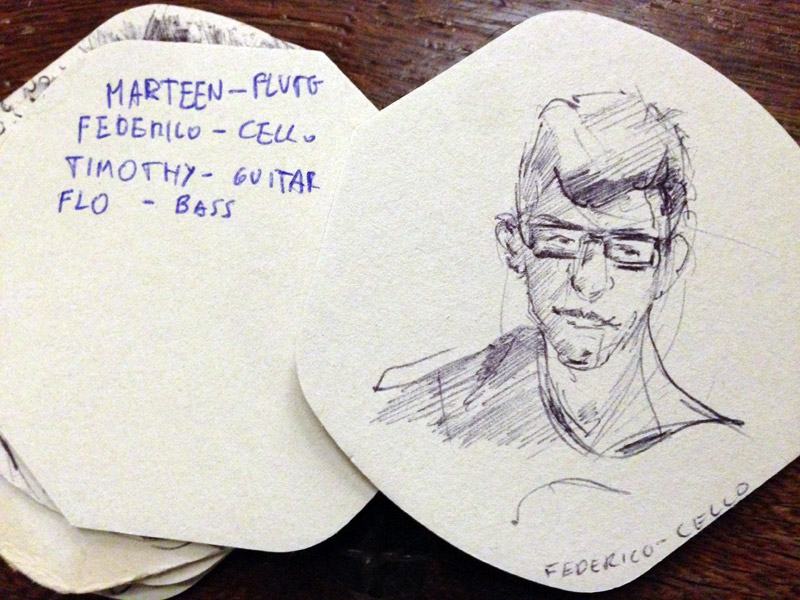 MARTEEN - FLUTE
FEDERICO - CELLO
TIMOTHY - GUITAR
FLO - BASS
FEDERICO - CELLO